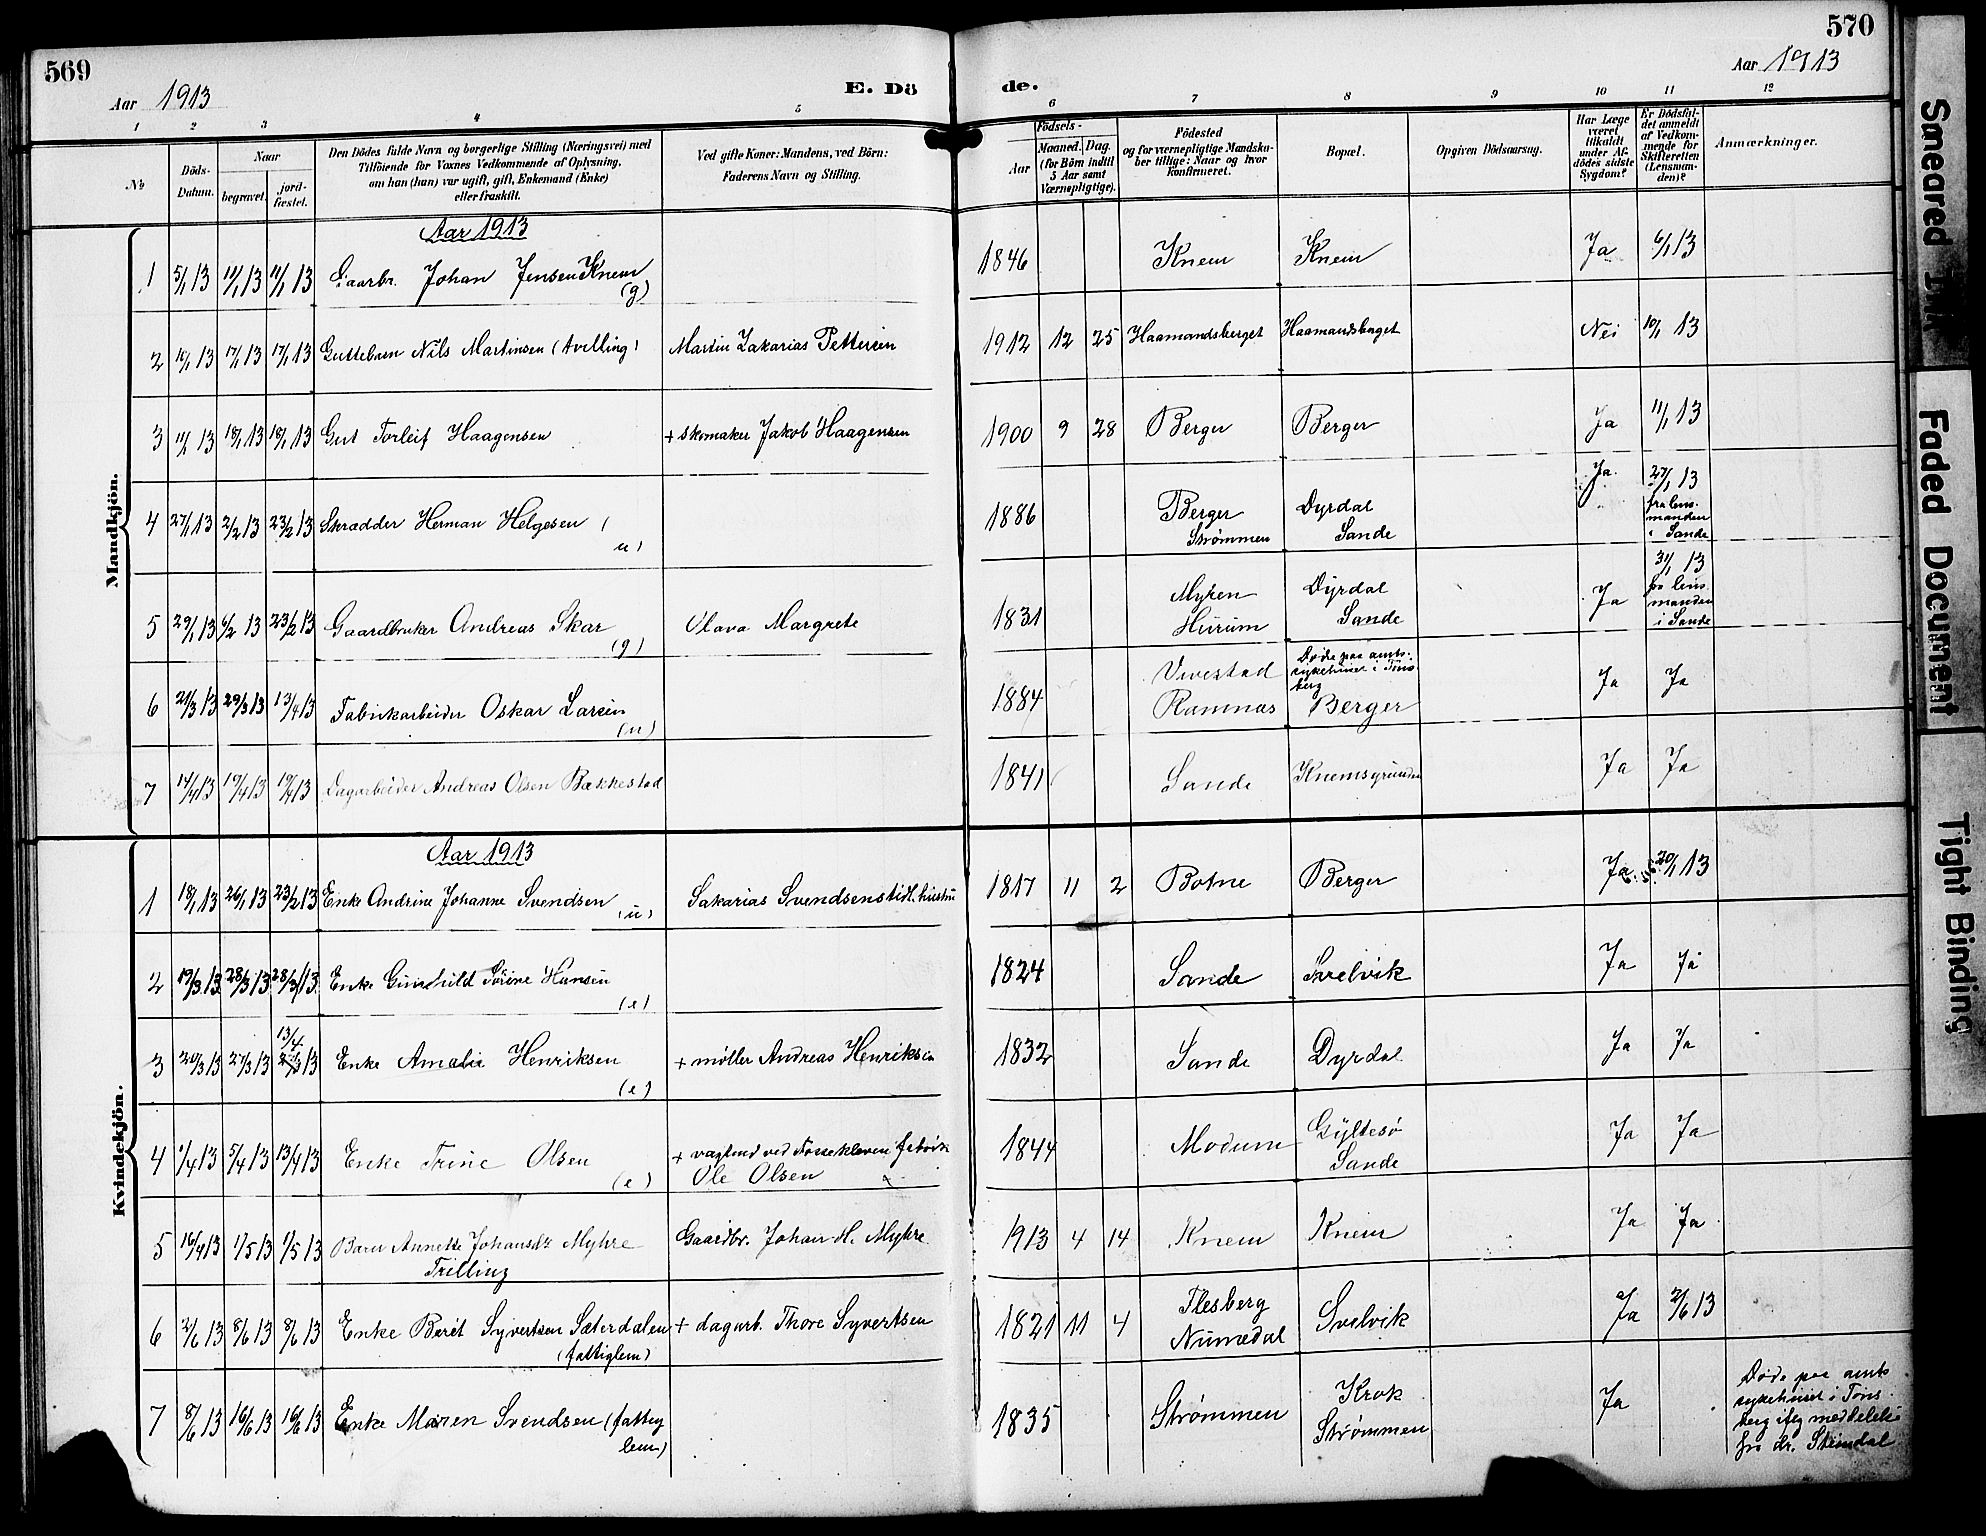 569
Aar 1913
E. Dö de.
570
Aar 1913
1 2 3 4 5 6 7 8 9 10 11 12
No
Döds-Datum.
Naar
begravet.
jord-fæstet.
Den Dödes fulde Navn og borgerlige Stilling (Næringsvei) med
Tilföiende for Voxnes Vedkommende af Oplysning,
om han (hun) var ugift, gift, Enkemand (Enke)
eller fraskilt.
Ved gifte Koner: Mandens, ved Börn:
Faderens Navn og Stilling.
Födsels-
Aar
Maaned. Dag.
(for Börn indtil
5 Aar samt
Værnepligtige).
Födested
og for værnepligtige Mandska-
ber tillige: Naar og hvor
konfirmeret.
Bopæl.
Opgiven Dödsaarsag.
Har Læge
været
tilkaldt
under Af-
dödes sidste
Sygdom?
Er Dödsfal-
det anmeldt
af Vedkom-
mende for
Skifteretten
(Lensman-
den)?
Anmærkninger.
Mandkjön.
Aar 1913
1 5/1 13 11/1 13 11/1 13 Gaarbr. Johan Jensen Knem (g) 1846 Knem Knem Ja 6/1 13
2 10/1 13 17/1 13 17/1 13 Guttebarn Nils Martinsen (tvilling) Martin Zakarias Pettersen 1912 12 25 Haamandsberget Haamandsberget Nei 10/1 13
3 11/1 13 18/1 13 18/1 13 Gut Torleif Haagensen + skomaker Jakob Haagensen 1900 9 28 Berger Berger Ja 11/1 13
4 27/1 13 2/2 13 23/2 13 Skrædder Herman Helgesen (u) 1886 Berger Strømmen Dyrdal Sande Ja. 27/1 13 fra lensmanden i Sande
5 29/1 13 6/2 13 23/2 13 Gaardbruker Andreas Skar (g) Olava Margrete 1831 Myren Hurum Dyrdal Sande Ja 31/1 13 fra lensmanden i Sande
6 21/3 13 29/3 13 13/4 13 Fabrikarbeider Oskar Larsen (u) 1884 Vivestad Ramnas Døde paa amtssykehuset i Tønsberg Berger Ja Ja
7 14/4 13 19/4 13 19/4 13 Dagarbeider Andreas Olsen Bækkestad 1841 Sande Knemsgrunden Ja Ja
Kvindekjön.
Aar 1913
1 18/1 13 26/1 13 23/2 13 Enke Andrine Johanne Svendsen (u) Sakarias Svendsens tidl. hustru 1817 11 2 Botne Berger Ja 20/1 13
2 19/3 13 28/3 13 28/3 13 Enke Gunhild Sørine Hansen (e) 1824 Sande Svelvik Ja Ja
3 20/3 13 27/3 13 13/4 13 Enke Amalie Henriksen (e) + møller Andreas Henriksen 1832 Sande Dyrdal Ja Ja
4 1/4 13 5/4 13 13/4 13 Enke Trine Olsen (e) + vagtmd ved Fossekleven fabrik Ole Olsen 1844 Modum Gyltesø Sande Ja Ja
5 16/4 13 1/5 13 1/5 13 Barn Annette Johansdt Myhre Trilling Gaardbr. Johan H. Myhre 1913 4 14 Knem Knem Ja Ja
6 2/6 13 8/6 13 8/6 13 Enke Berit Syvertsen Sæterdalen (fattiglem) + dagarb. Thore Syvertsen 1821 11 4 Flesberg Numedal Svelvik Ja 2/6 13
7 8/6 13 16/6 13 16/6 13 Enke Maren Svendsen (fattiglem) 1835 Strømmen Krok Strømmen Ja Døde paa amtssykehuset i Tønsberg ifølg meddelelse fra dr. Steindal
Smeared Ink
Faded Document
Tight Binding